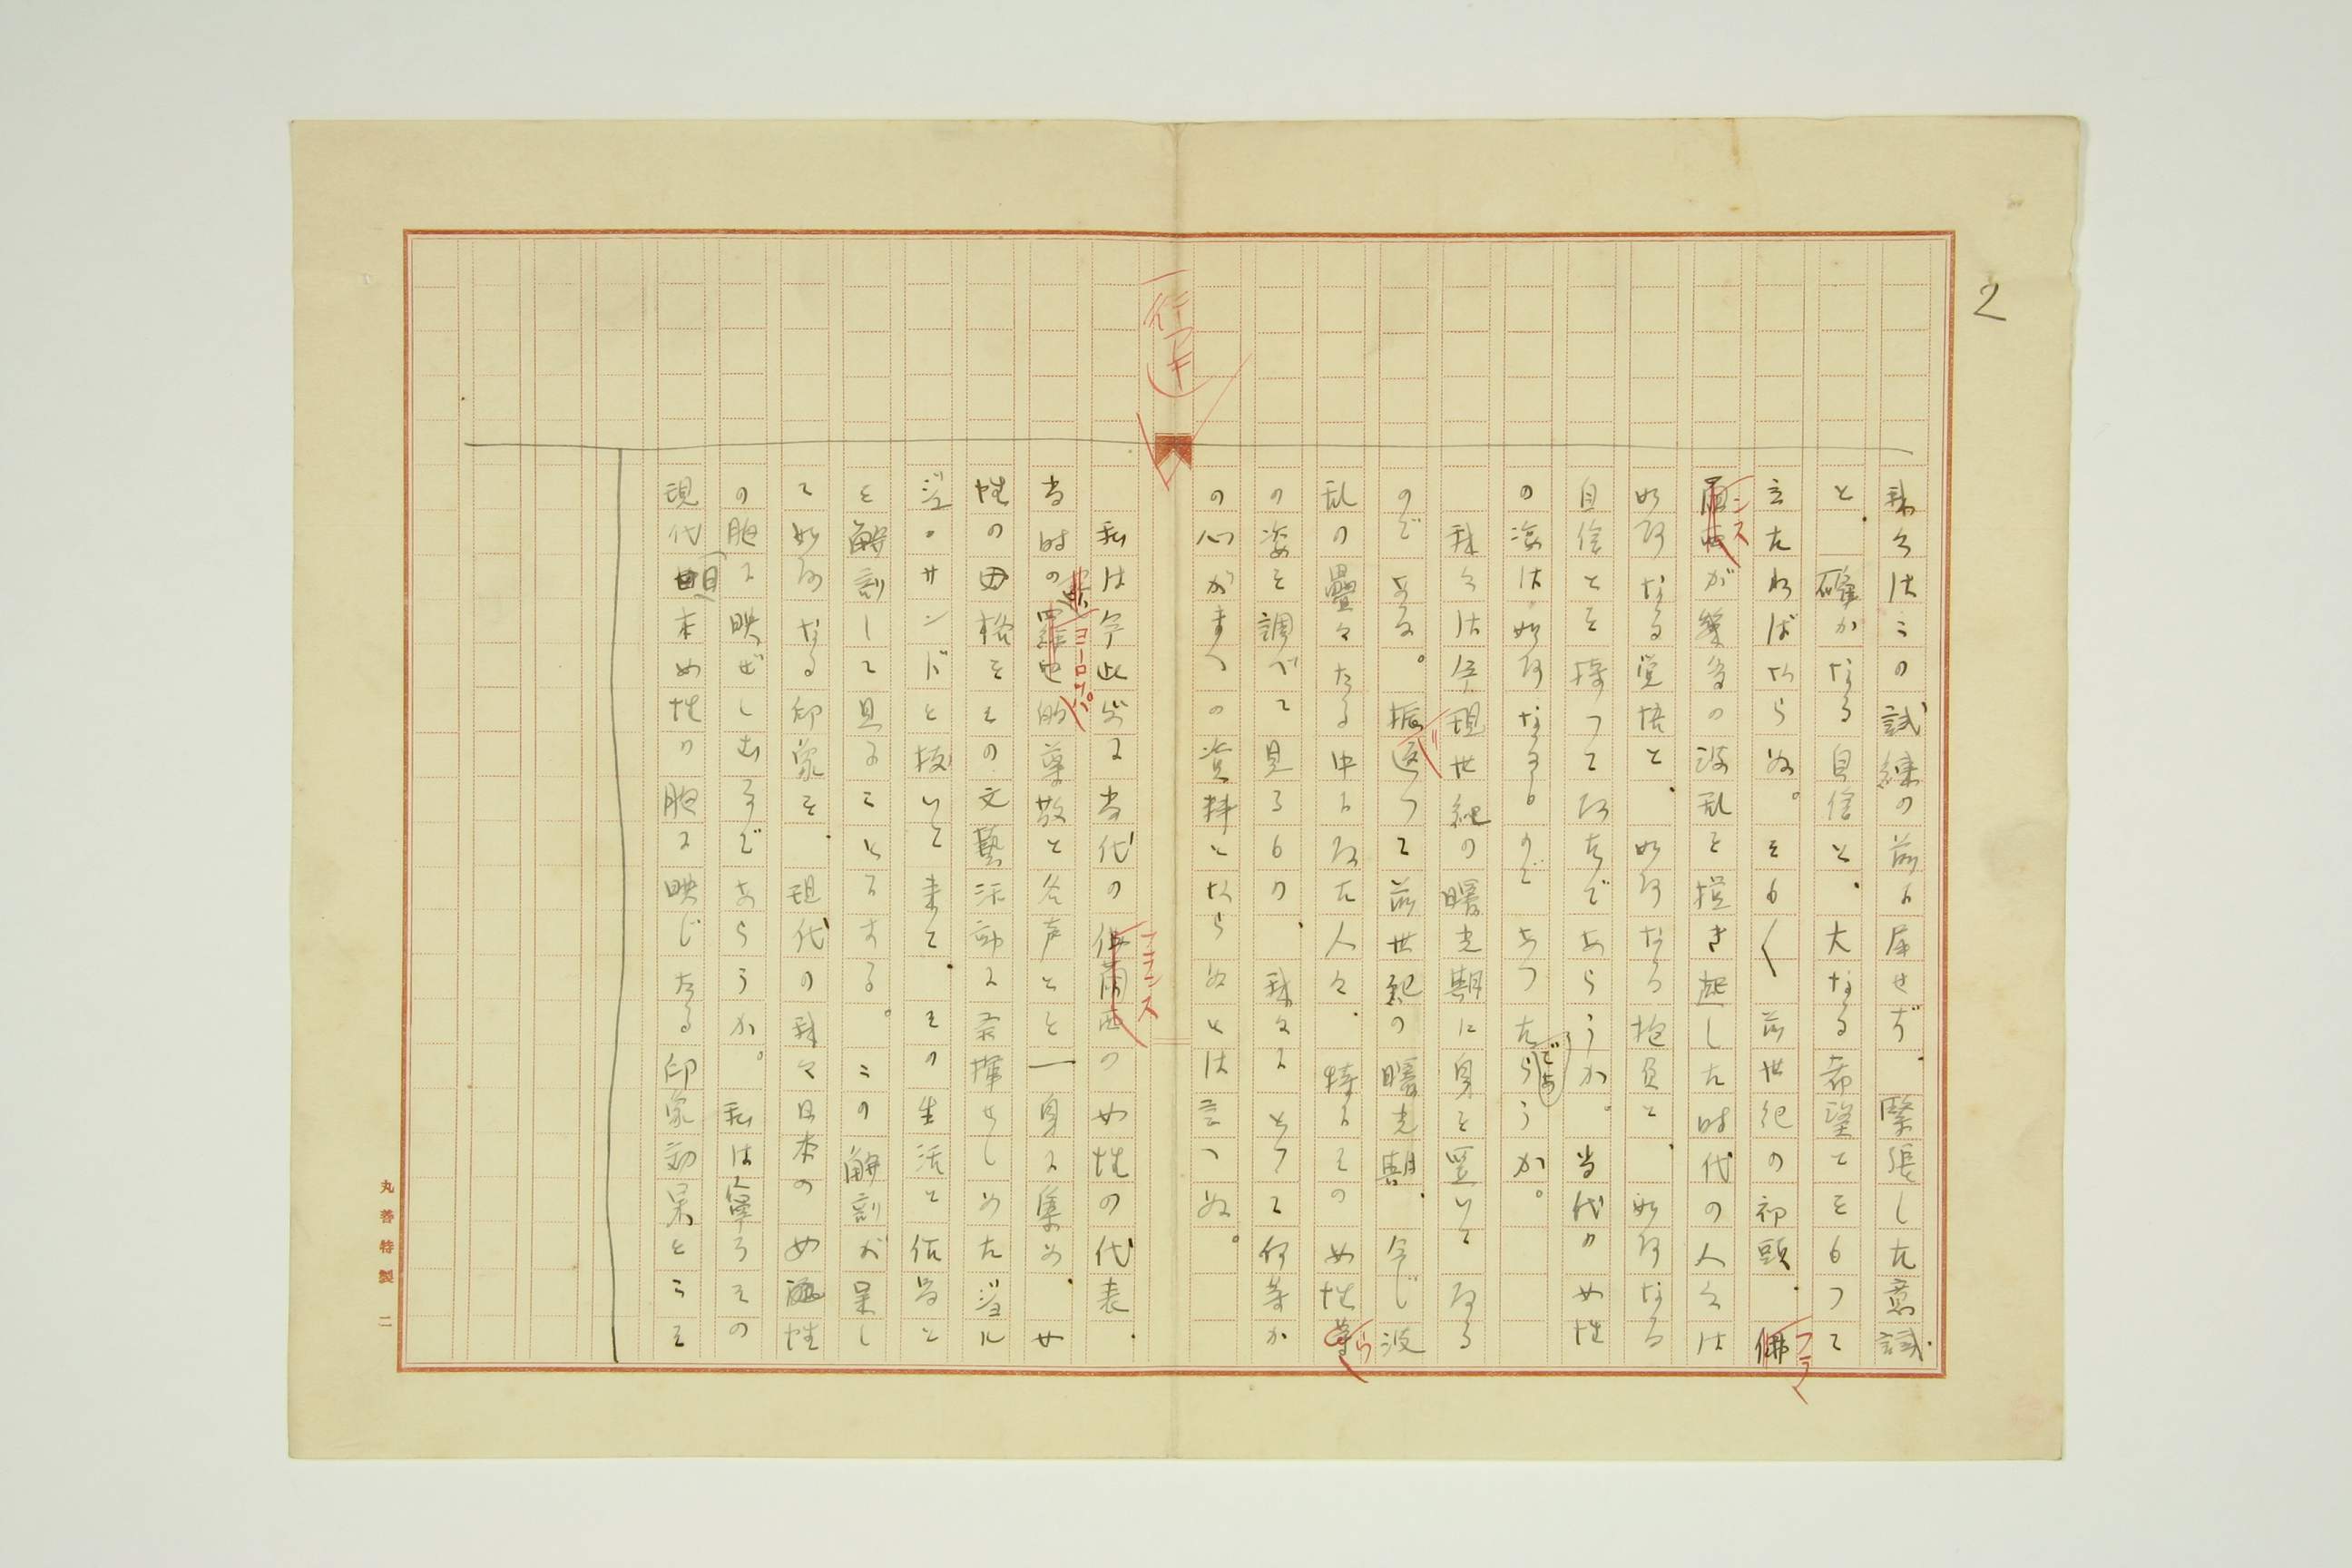 2
我々はこの試練の前に屈せず、緊張した意識
と、確かなる自信と、大なる希望とをもつて
立たねばならぬ。そも〱前世紀の初頭、佛
フラ
ンス
蘭西が幾多の波乱を捲き起した時代の人々は
如何なる覚悟と、如何なる抱負と、如何なる
自信とを持つて何ちであらうか。当代の女性
の姿は如何なるものであつたらうか。
であ
我々は今現世紀の曙光期に身を置いてゐる
のである。振返つて前世紀の曙光期、今し波
り
乱の疊々たる中にゐた人々、特にその女性等
ら
の姿を調べて見るもの、我々にとつて何等か
の心がまへの資料とならぬとは言へぬ。
一行アキ
私は今此処に当代の佛蘭西の女性の代表、
フランス
当時の欧羅巴的
ヨーロッパ
尊敬と名声とを一身に集め、女
性の母格をその文藝活動に発揮せしめたジヨル
ジユ・サンドを抜いて来て、その生活と作品と
を解剖して見ることにする。この解剖が果し
て如何なる印象を、現代の我々日本の女性
の胞に映ぜしむるであらうか。私は寧ろその
現代日本女性の胞に映じたる印象効果をこそ
丸善特製 二